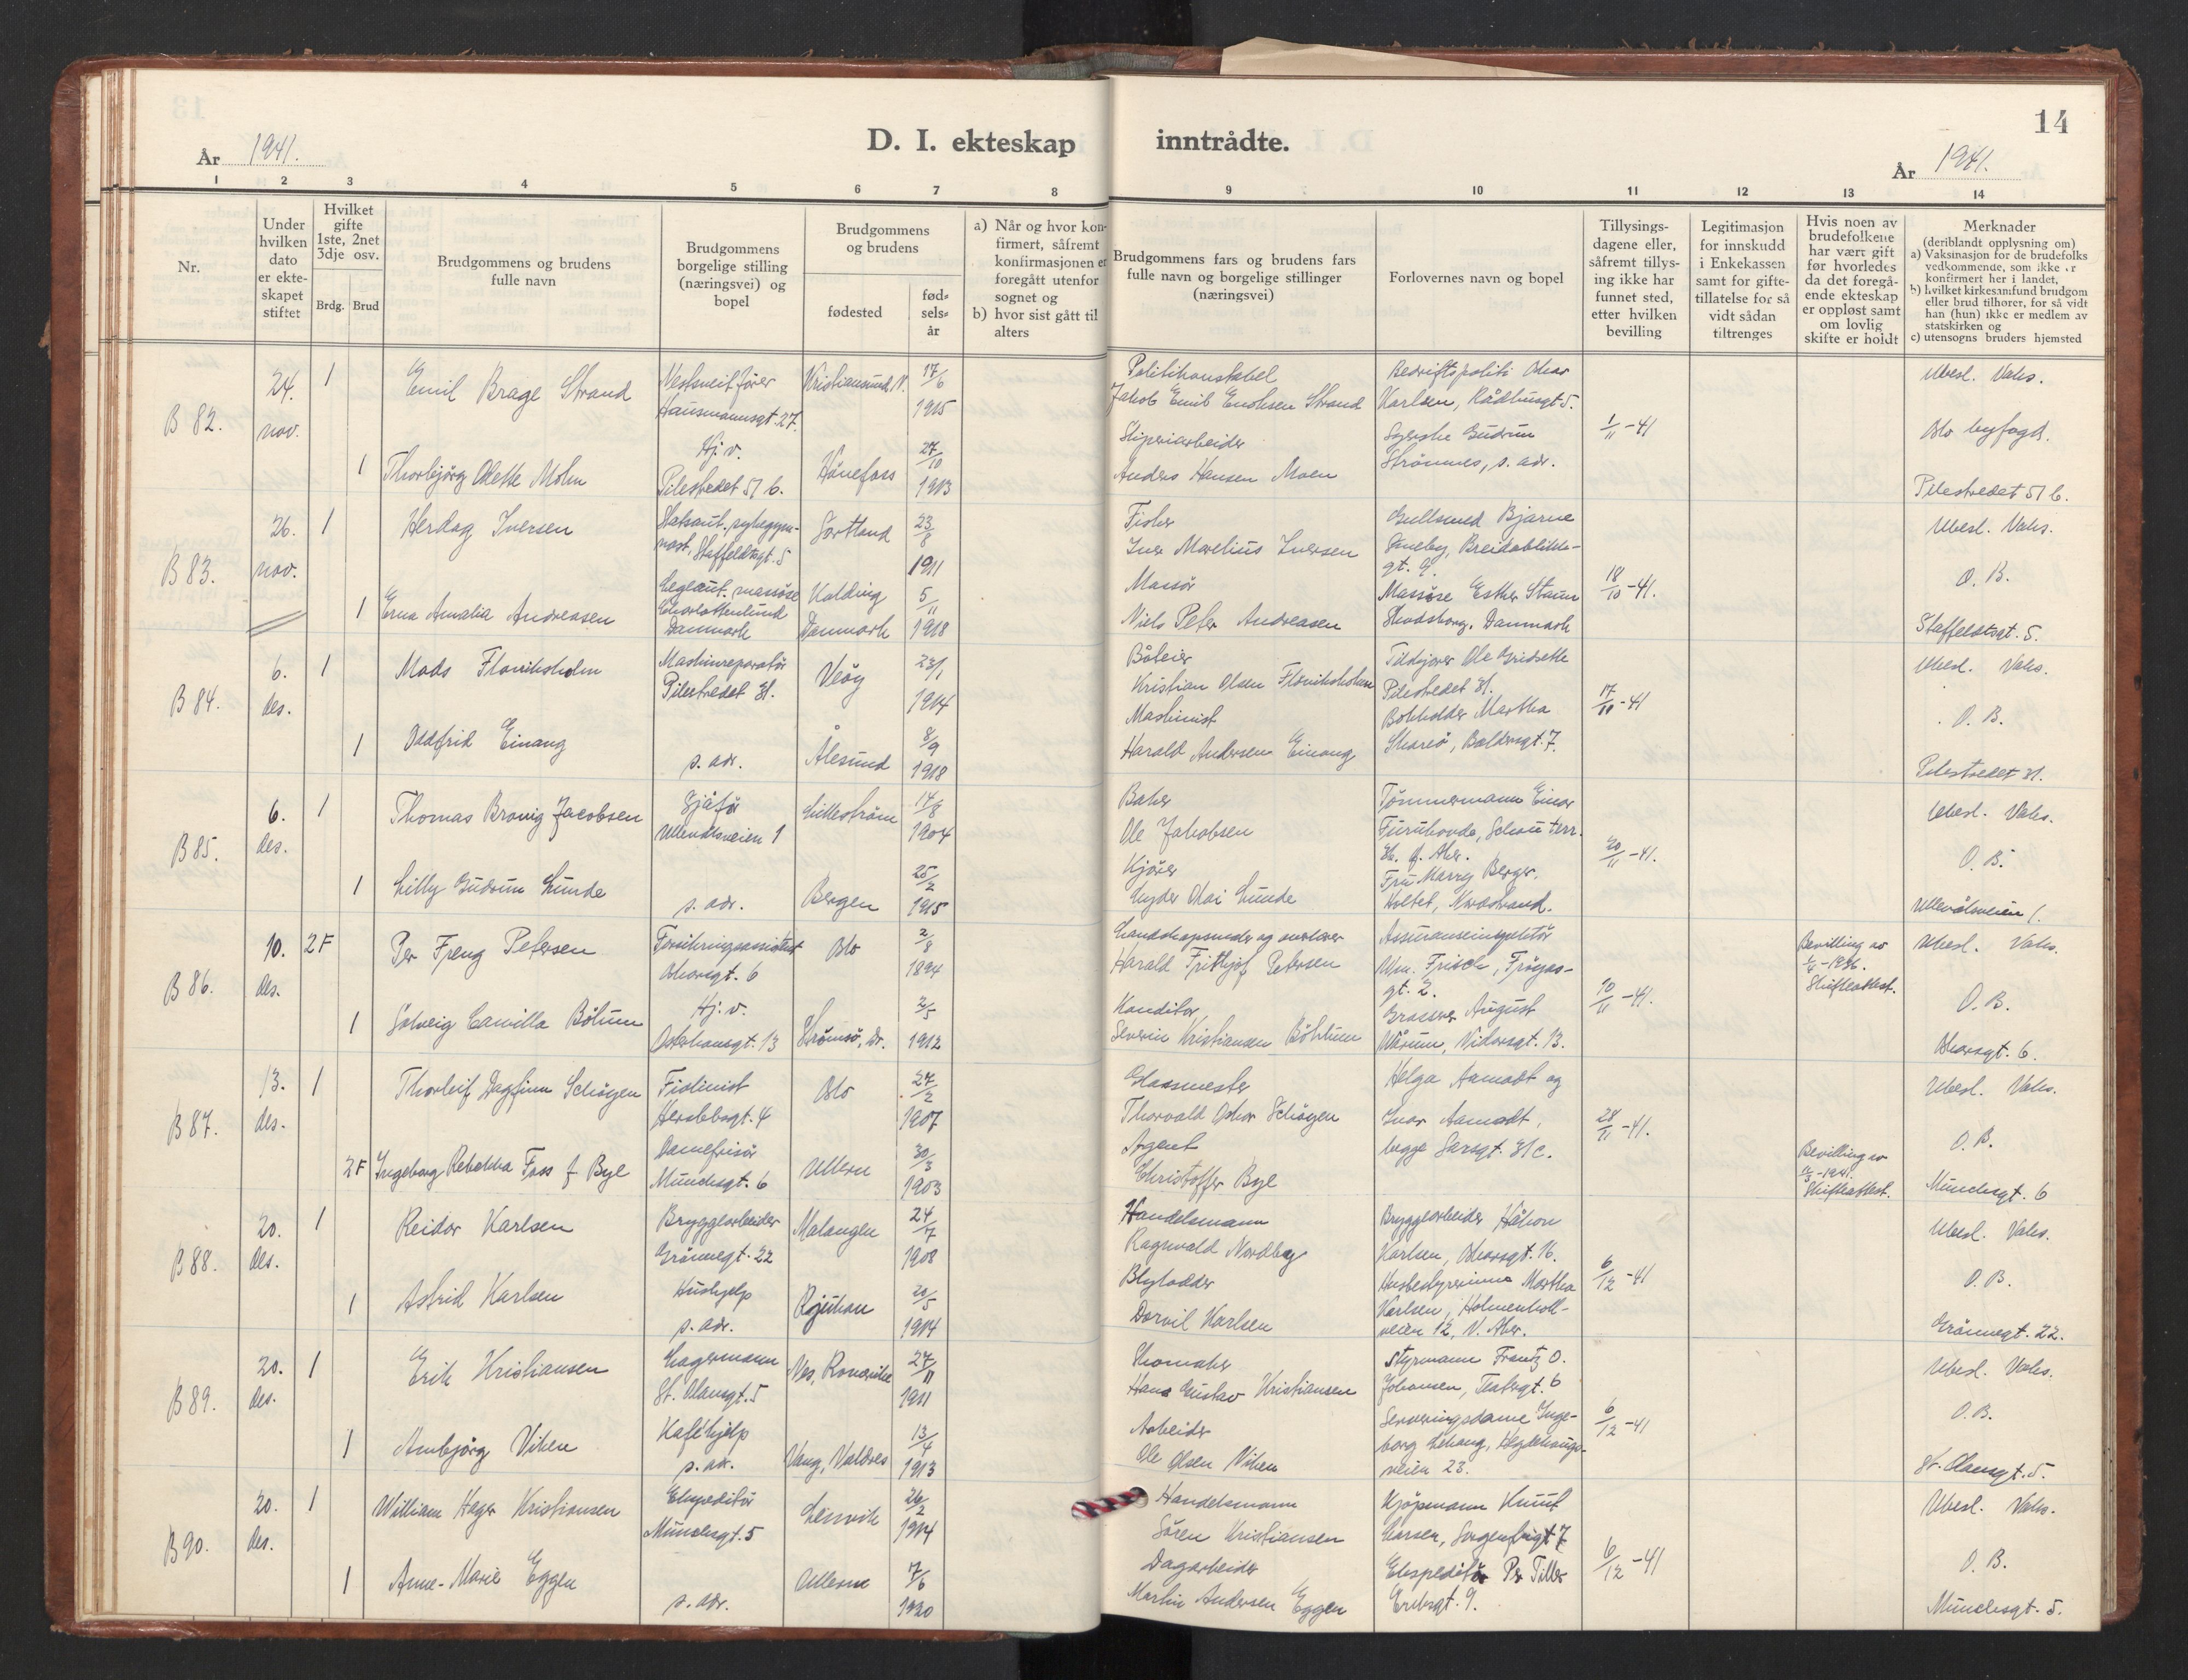 14
År 1941.
D. I. ekteskap inntrådte.
År 1941.
1 2 3 4 5 6 7 8 9 10 11 12 13 14
Nr.
Under hvilken dato er ekteskapet stiftet
Hvilket gifte 1ste, 2net 3dje osv.
Brdg. Brud
Brudgommens og brudens fulle navn
Brudgommens borgelige stilling (næringsvei) og bopel
Brudgommens og brudens
fødested
fød-sels-år
a) Når og hvor konfirmert, såfremt konfirmasjonen er foregått utenfor sognet og
b) hvor sist gått til alters
Brudgommens fars og brudens fars fulle navn og borgelige stillinger (næringsvei)
Forlovernes navn og bopel
Tillysings-dagene eller, såfremt tillysing ikke har funnet sted, etter hvilken bevilling
Legitimasjon for innskudd i Enkekassen samt for giftetillatelse for så vidt sådan tiltrenges
Hvis noen av brudefolkene har vært gift før hvorledes da det foregående ekteskap er oppløst samt om lovlig skifte er holdt
Merknader
(deriblandt opplysning om)
a) Vaksinasjon for de brudefolks vedkommende, som ikke er konfirmert her i landet,
b) hvilket kirkesamfund brudgom eller brud tilhører, for så vidt han (hun) ikke er medlem av statskirken og
c) utensogns bruders hjemsted
B 82.
24. nov.
1
Emil Brage Strand
Hausmannsgt. 27.
Kristiansund N.
17/6 1915
Politikonstabel
Jakob Emil Enoksen Strand
Bedriftspoliti Oskar
Karlsen, Rådhusgt 5.
1/11-41
Ubesl. Vaks.
Oslo byfogd.
1
Thorbjörg Olette Molm
Hj. v.
Pilestredet 57 b.
Hönefoss
27/10 1913
Sliperiarbeider
Anders Hansen Moen
Gudrun
Strömnes, s. adr.
Pilestredet 57 b.
B 83.
26. nov.
1
Herdag Iversen
Statsaut. sykegym-
nast, Staffeldtsgt. 5
Sortland
23/8 1911
Fisker
Iver Marelius Iversen
Gullsmed Bjarne
Breidablikk-
gt. 9.
18/10-41.
Ubesl. Vaks.
O. B.
1
Erna Amalia Andreasen
Legeaut. massöse
Charlottenlund
Danmark
Kolding
Danmark
5/11 1918
Massör
Niels Peter Andreasen
Massöse Esther Staun
Skodsborg. Danmark
Staffeldtsgt. 5.
B 84.
6. des.
1
Mads Flovikholm
Maskinreparatör
Pilestredet 31.
Veöy
23/1 1914
Kristian Olsen Flovikholm
Ole Gridsette
Pilestredet 31.
17/11-41
Ubesl. Vaks.
O. B.
1
Oddfrid Einang
s. adr.
Ålesund
8/9 1918
Maskinist
Harald Andersen Einang
Bokholder Martha
Skareö, Baldersgt. 7.
Pilestredet 31.
B 85.
6. des.
1
Thomas Brovig Jacobsen
Sjåför
Ullevålsveien 1
Lilleström
14/8 1904
Baker
Ole Jakobsen
Tömmermann Einar
Furuhovde, Schou terr.
20/11-41.
Ubesl. Vaks.
O. B.
1
Lilly Gudrun Lunde
s. adr.
Bergen
25/2 1915
Kjörer
Lyder Olai Lunde
Fru Marry Berger.
Holtet, Nordstrand.
Ullevålsveien 1.
B 86.
10. des.
2 F
Per Freng Petersen
Forsikringsassistent
Oscarsgt. 6
Oslo
2/8 1894
Landskapsmaler og overlærer
Harald Frithjof Petersen
Assuranseinspektör
Wm. Frisch, Fröyas-
gt. 2.
10/11-41.
Bevilling av
1/4-1936.
Skifteattest.
Ubesl. Vaks.
O. B.
1
Solveig Camilla Böhum
Hj. v.
Osterhausgt. 13
Strömsö, Dr.
2/5 1912
Konditor
Severin Kristiansen Böhum
Grosserer August
Wårum, Vidarsgt. 13.
Oscarsgt. 6.
B 87.
13. des.
1
Thorleif Dagfinn Schöyen
Fiolinist
Herslebsgt. 4
Oslo
27/2 1907
Glassmester
Thorvald Oskar Schöyen
Helga Aamodt og
Ivar Aamodt,
begge Sarsgt. 31 c.
28/11-41.
Ubesl. Vaks.
O. B.
2 F
Ingeborg Rebekka Foss f. Bye
Damefrisör
Munchsgt. 6
Ullern
30/3 1903
Agent
Christoffer Bye
Bevilling av
-1941.
Skifteattest.
Munchsgt. 6
B 88.
20. des.
1
Reidar Karlsen
Bryggearbeider
Grönnegt. 22
Malangen
24/7 1908
Handelsmann
Ragnvald Nordby
Bryggearbeider Håkon
Karlsen, Oscarsgt. 16.
6/12-41
Ubesl. Vaks.
O. B.
1
Astrid Karlsen
Hushjelp
s. adr.
Rjukan
20/5 1914
Blylodder
Dorvil Karlsen
Husbestyrerinne Martha
Karlsen, Holmenkoll-
veien 12, V. Aker.
Grönnegt. 22.
B 89.
20. des.
1
Erik Kristiansen
Lagermann
St. Olavsgt. 5
Nes, Romerike
27/11 1911
Skomaker
Hans Gustav Kristiansen
Styrmann Frantz O.
Johansen, Teatergt. 6
6/12-41
Ubesl. Vaks.
O. B.
1
Arnbjörg Viken
Kaféhjelp
s. adr.
Vang, Valdres
13/4 1913
Arbeider
Ole Olsen Viken
Serveringsdame Inge-
borg Lehaug, Hegdehaugs-
veien 23.
St. Olavsgt. 5.
B 90.
20. des.
1
William Hager Kristiansen
Ekspeditör
Munchsgt. 5
Lenvik
26/2 1914
Handelsmann
Sören Kristiansen
Kjöpmann Knut
Larsen, Sorgenfrigt 7.
6/12-41
Ubesl. Vaks.
O. B.
1
Anne-Marie Eggen
s. adr.
7/6 1920
Dagarbeider
Martin Andersen Eggen
Ekspeditör Per Tiller
Eriksgt. 9.
Munchsgt. 5.